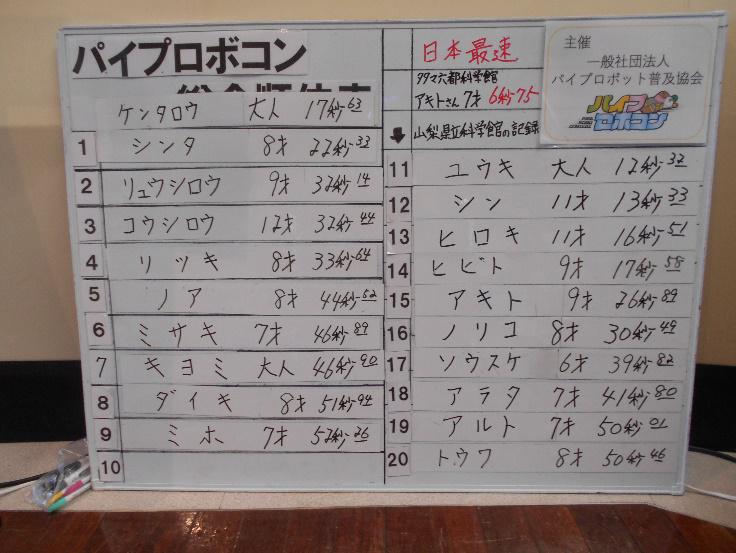 パイプロボコン
総合順位表
ケンタロウ 大人 17秒63
1 シンタ 8才 22秒33
2 リュウシロウ 9才 32秒14
3 コウシロウ 12才 32秒44
4 リツキ 8才 33秒64
5 ノア 8才 44秒52
6 ミサキ 7才 46秒89
7 キヨミ 大人 46秒90
8 ダイキ 8才 51秒94
9 ミホ 7才 52秒26
10
日本最速
タタマ六都科学館
アキトさん 7才 6秒75
山梨県立科学館の記録
主催
一般社団法人
パイプロボット普及協会
パイプ
ロボコン
11 ユウキ 大人 12秒32
12 シン 11才 13秒33
13 ヒロキ 11才 16秒51
14 ヒビト 9才 17秒58
15 アキト 9才 26秒89
16 ノリコ 8才 30秒49
17 ソウスケ 6才 39秒82
18 アラタ 7才 41秒80
19 アルト 7才 50秒01
20 トウワ 8才 50秒46